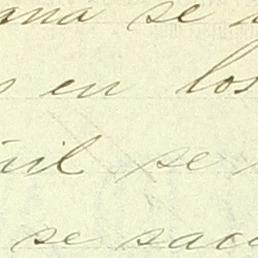 ana se
en los
il se
se sac